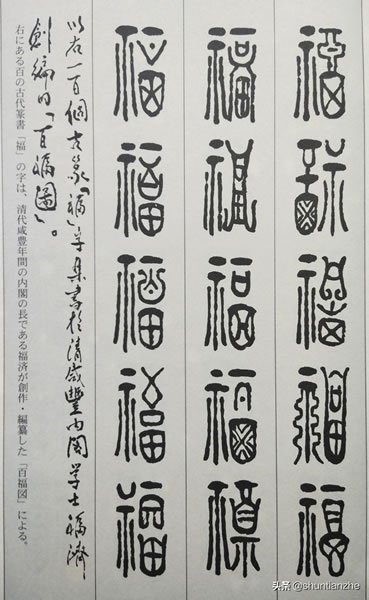 福福福福福
福福福福福
福福福福福
以右一百個古篆「福」字集書於清咸豐内閣学士福濟
創編的「百福圖」。
右にある百の古代篆書「福」の字は、清代咸豊年間の内閣の長である福済が創作・編纂した「百福図」による。
头条 @shuntianzhe